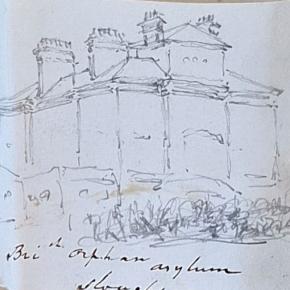 Brith orphan asylum
Slough